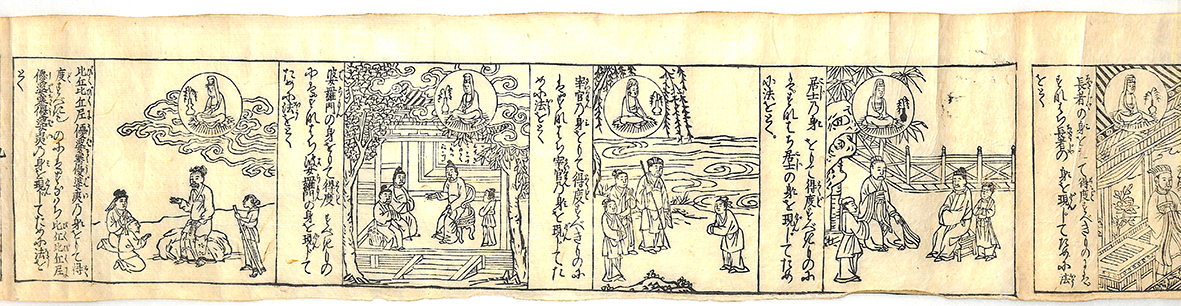 長者の身をもつて得度すべきものには
すなはち長者の身を現じてために法
をとく
居士乃身をもつて得度すべきものに
はすなはち居士の身を現じてため
に法をとく
宰官乃身をもつて得度すべきものに
はすなはち宰官乃身を現じてた
めに法をとく
婆羅門の身をもつて得度すべきもの
にはすなはち婆羅門の身を現じて
ために法をとく
比丘比丘尼優婆塞優婆夷乃身をもつて得
度すべきものにはすなはち比丘比丘尼
優婆塞優婆夷の身を現じてために法を
とく